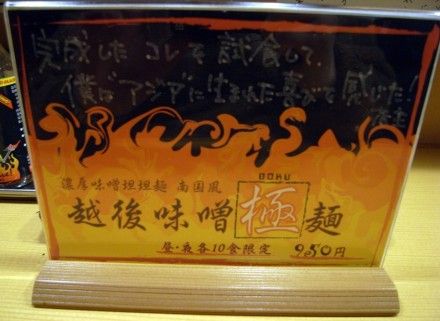 完成したコレを試食して、
僕は"アジア"に生まれた喜びを感じた!
店主
濃厚味噌坦坦麺 南国風
GOKU
越後味噌極麺
昼・夜各10食限定 950円